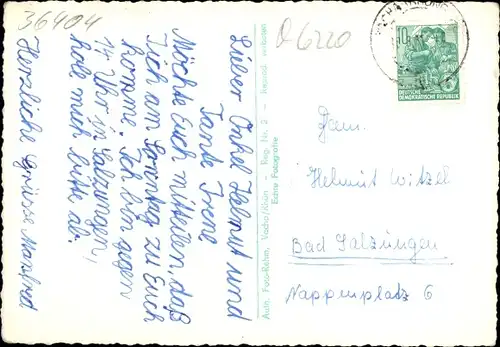 36404
Q 6220
Lieber Onkel Helmut und
Tante Irene
Möchte Euch mitteilen, daß
ich am Sonntag zu Euch
komme. Ich bin gegen
14 Uhr in Salzungen,
hole mich bitte ab.
Herzliche Grüsse Manfred
Auto. Foto-Rahm, Vacha/Rhön - Reg. Nr. 2 -
Echte Fotografie
10
DEUTSCHE
DEMOKRATISCHE REPUBLIK
Fam.
Helmut Witzel
Bad Salzungen
Nappenplatz 6